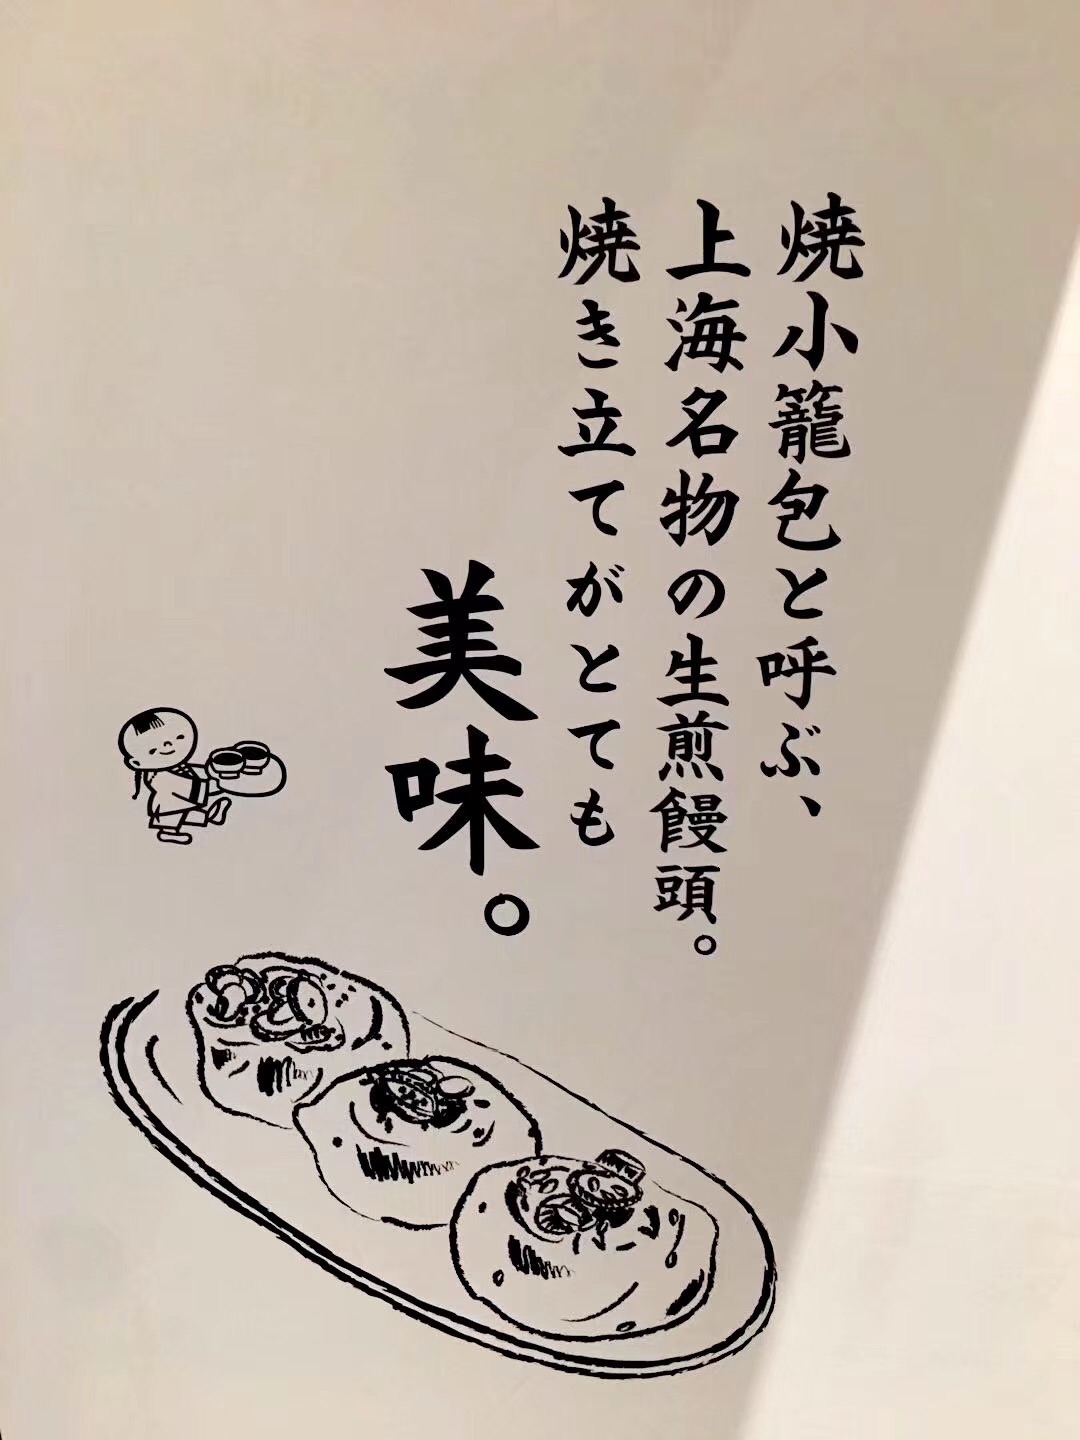 焼小籠包と呼ぶ、
上海名物の生煎饅頭。
焼き立てがとても
美味。